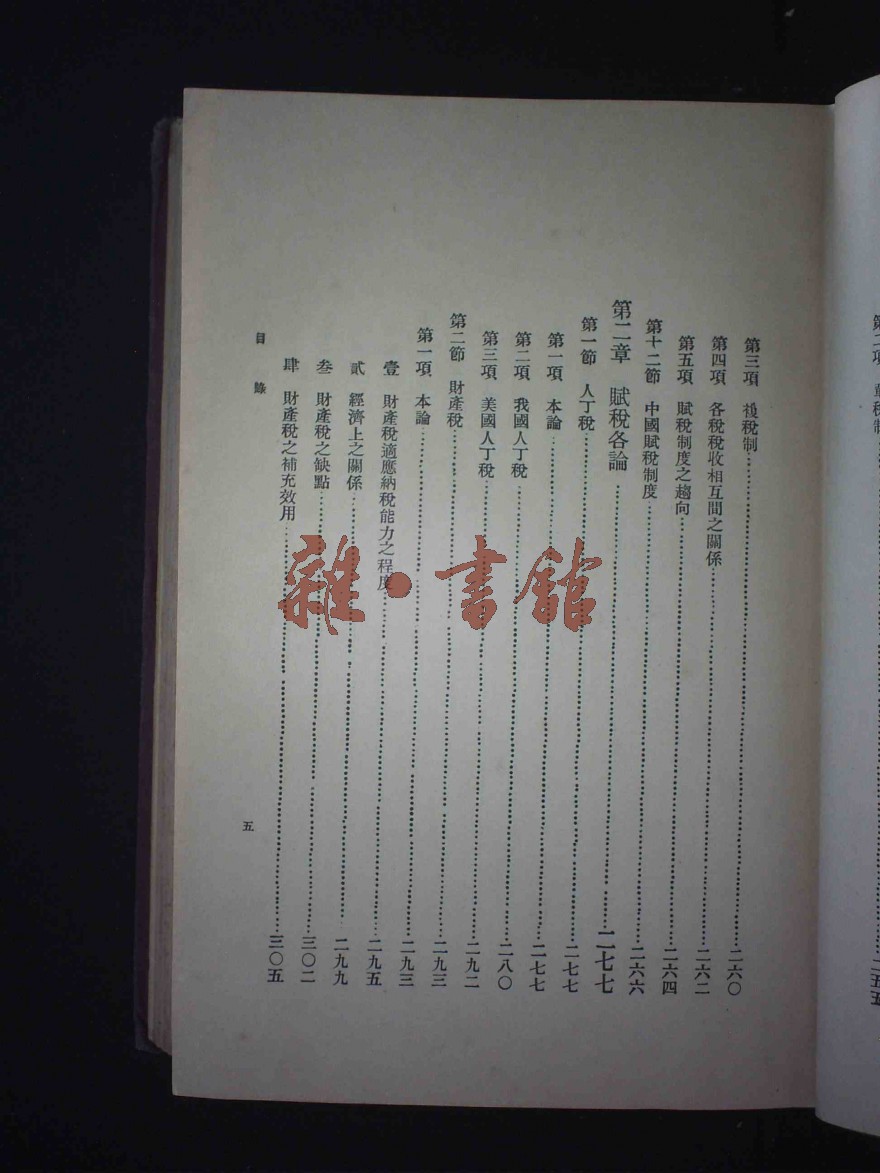 第三項　複稅制……二六〇
第四項　各稅稅收相互間之關係……二六二
第五項　賦稅制度之趨向……二六四
第十二節　中國賦稅制度……二六六
第二章　賦稅各論……二七七
第一節　人丁稅……二七七
第一項　本論……二七七
第二項　我國人丁稅……二八〇
第三項　美國人丁稅……二九二
第二節　財產稅……二九三
第一項　本論……二九三
壹　財產稅適應納稅能力之程度……二九五
貳　經濟上之關係……二九九
叁　財產稅之缺點……三〇二
肆　財產稅之補充效用……三〇五
目錄
五
雜·書館